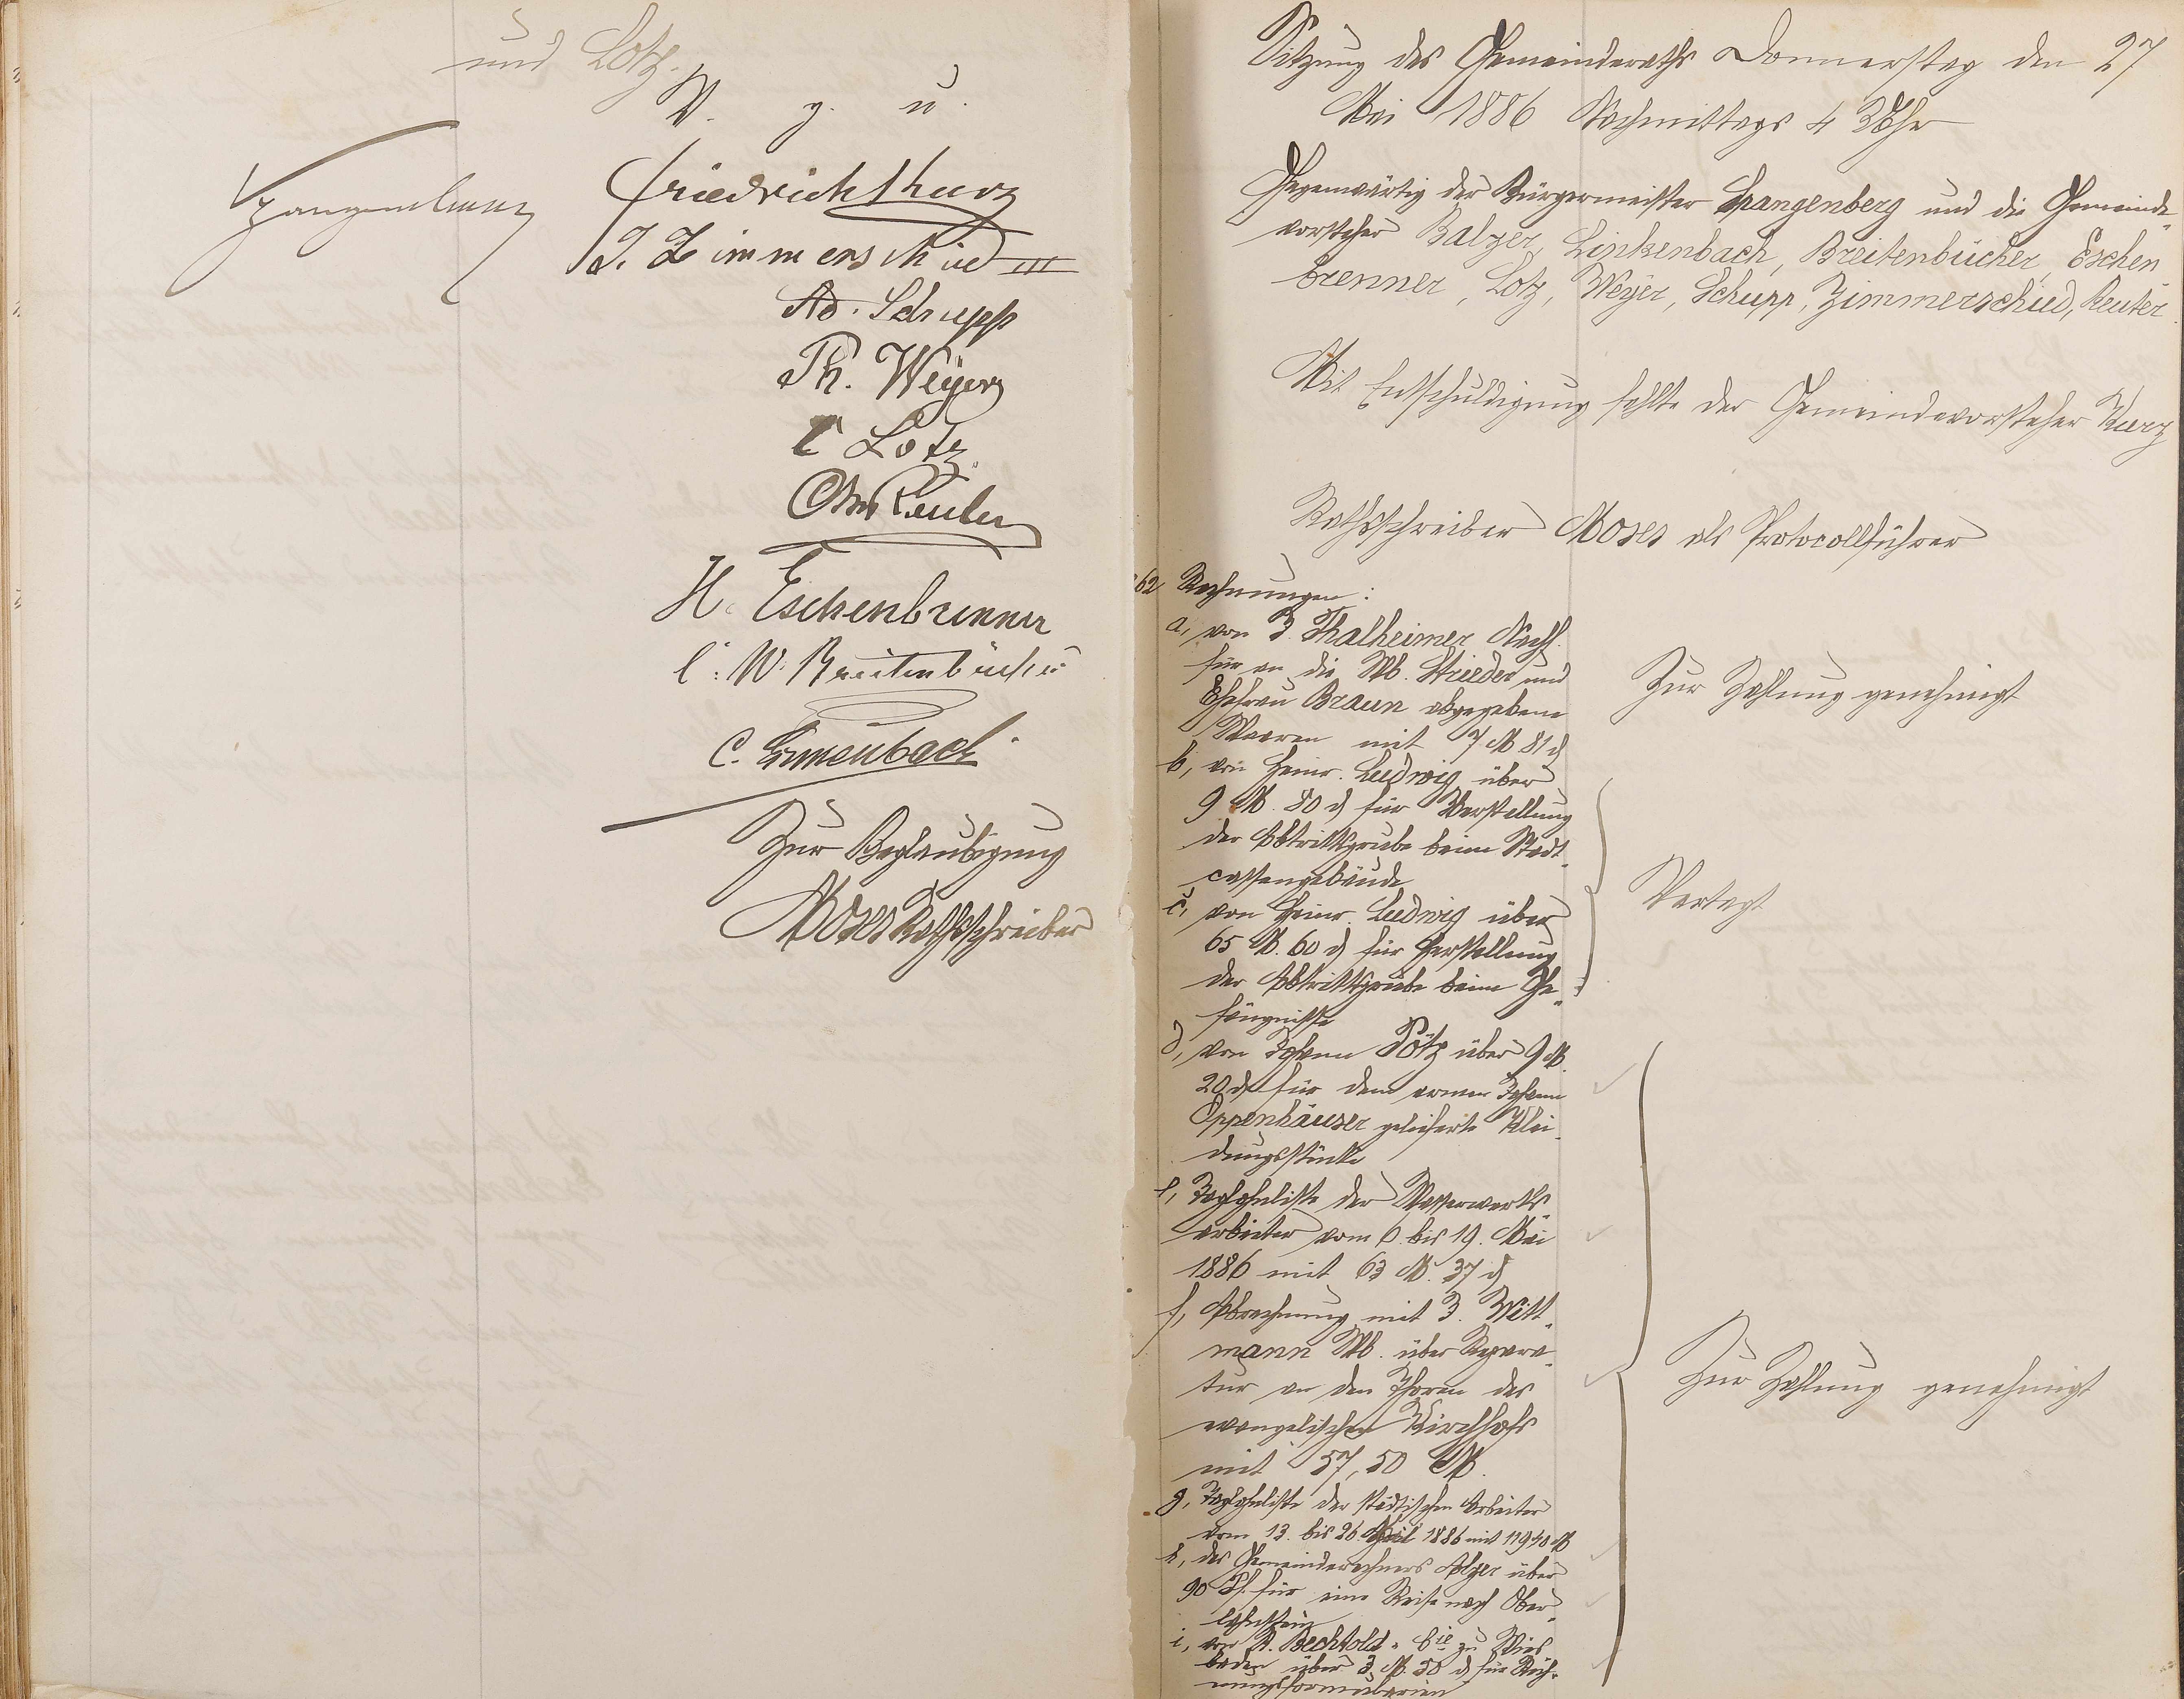 und Lotz.
V. g. u.
Spangenberg
Friedrich Kurz
J. Zimmerschied III
Ad. Schupp
Ph. Weyer
C Lotz
Reuter
H. Eschenbrenner
C. W. Breitenbücher
C. Linkenbach
Zur Beglaubigung
Moses Rathsschreiber
Sitzung des Gemeinderaths Donnerstag den 27
Mai 1886 Nachmittags 4 Uhr
Gegenwärtig der Bürgermeister Spangenberg und die Gemeinde
vorsteher Balzer, Linkenbach, Breitenbücher, Eschen
brenner, Lotz, Weyer, Schupp, Zimmerschied, Reuter
Mit Entschuldigung fehlte der Gemeindevorsteher Kurz
Rathsschreiber Moses als Protocollführer
262 Rechnungen:
a, von J. Thalheimer Nachf.
für an die Wb. Strieder und
Ehefrau Braun abgegebene
Waaren mit 7 M 81 d
Zur Zahlung genehmigt
b, von Heinr. Ludwig über
9 M. 80 d für Verstellung
der Abtrittgrube beim Stadt-
cassengebäude
c, von Heinr. Ludwig über
65 M. 60 d für Herstellung
der Abtrittgrube beim Ge-
fängnisse
Vertagt
d, von Johann Pötz über 9 M.
20 d für dem armen Johann
Oppenhäuser gelieferte Klei-
dungsstücke
e, Taglohnliste der Wasserwerks-
arbeiter vom 6. bis 19. Mai
1886 mit 63 M. 37 d
f, Abrechnung mit J. Witt-
mann Wb. über Repara-
tur an den Thoren des
evangelischen Kirchhofs
mit 57,50 M.
g, Taglohnliste der städtischen Arbeiter
vom 13. bis 26. 1886 mit M
h, des Gemeinderechners über
90 Pf. für eine Reise nach Ober-
lahnstein
i, von R. Bechtold & Cie zu Wies
baden über 3 M. 50 d für Rech-
nungsformularien
Zur Zahlung genehmigt